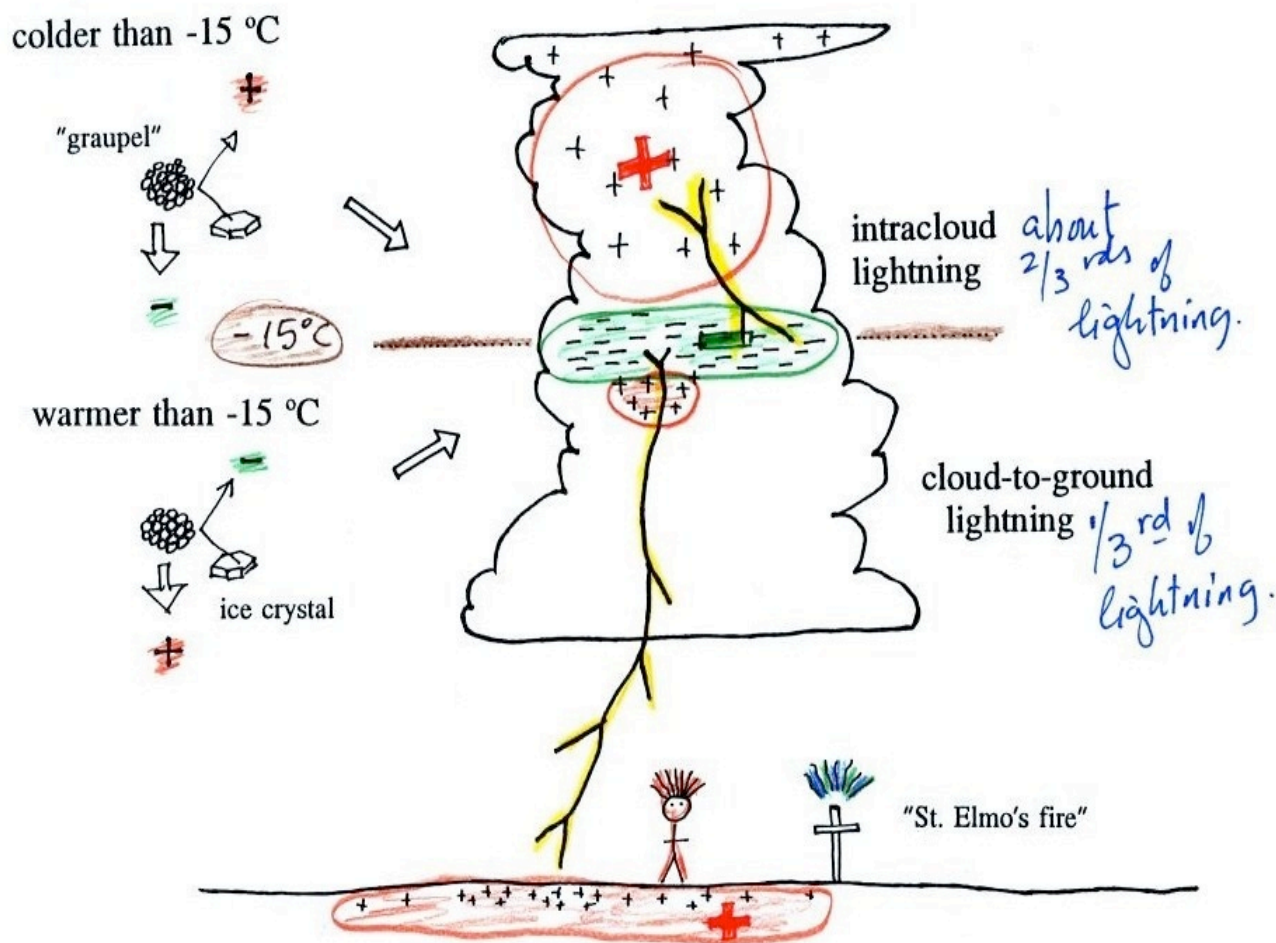 colder than -15 °C
+
"graupel"
-
-15°C
warmer than -15 °C
-
ice crystal
+
intracloud about
lightning 2/3 rds of
lightning.
cloud-to-ground
lightning 1/3 rd of
lightning.
"St. Elmo's fire"